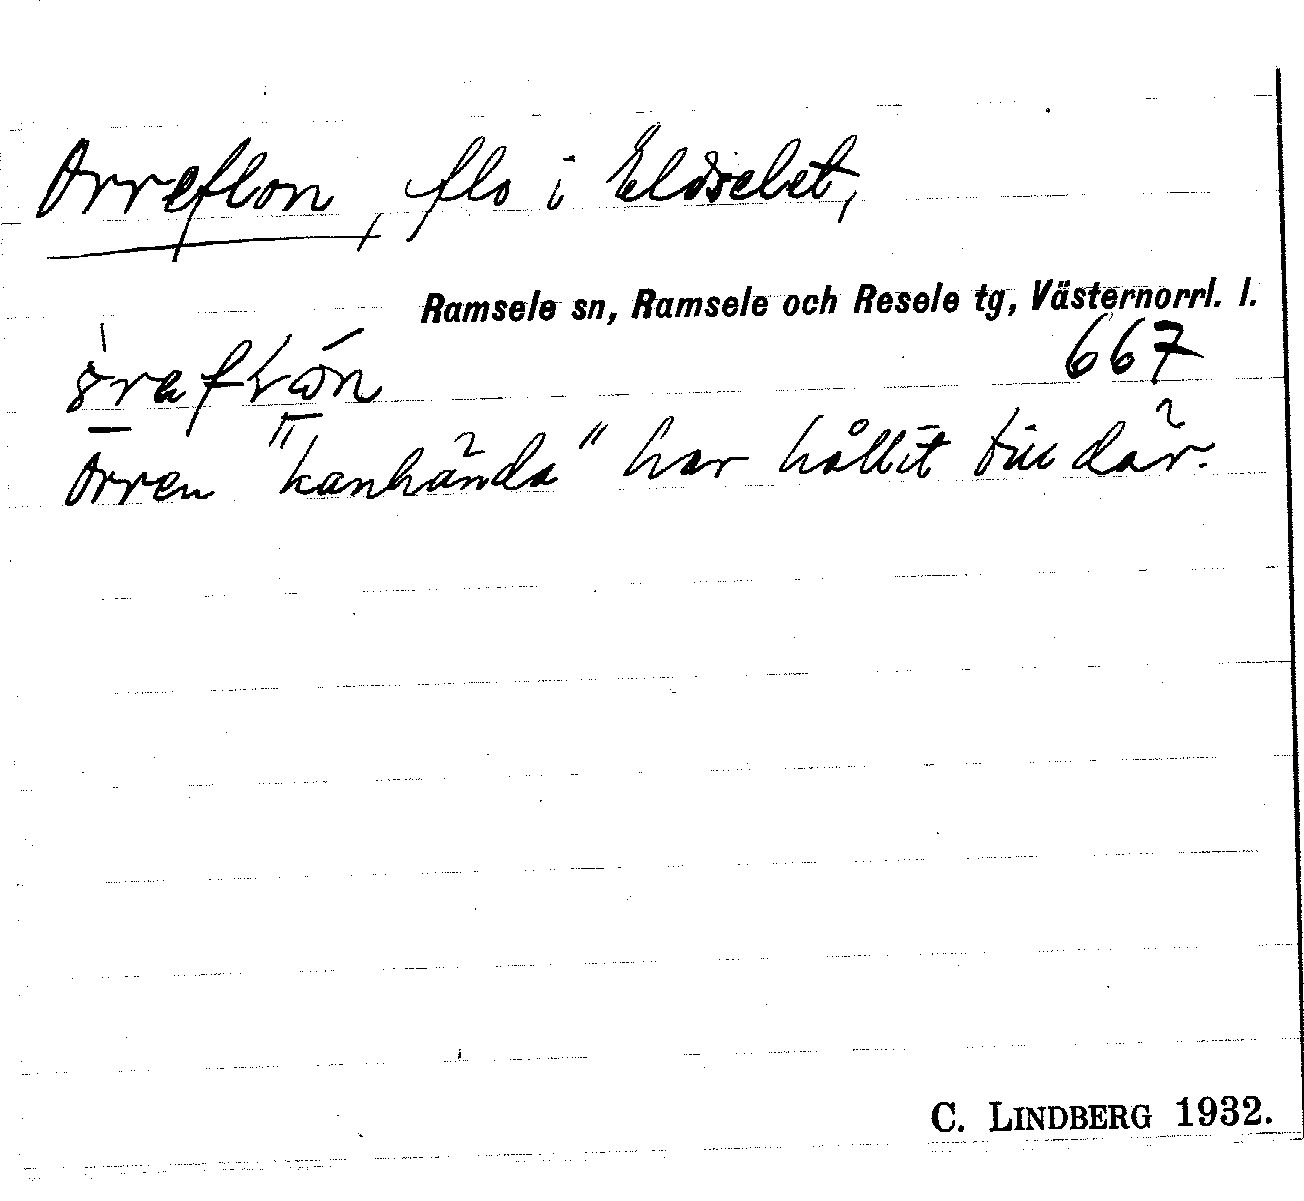 Orreflon, flo i Eldselet,
Ramsele sn, Ramsele och Resele tg, Västernorrl. l.
667
Orren "kanhända" har hållit till där.
C. LINDBERG 1932.